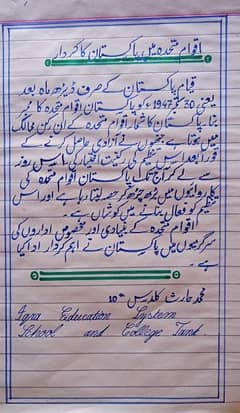 اقوام متحدہ میں پاکستان کا کردار
قیام پاکستان کے صرف ڈیڑھ ماہ بعد
یعنی 30 ستمبر 1947ء کو پاکستان اقوام متحدہ کا رکن
بنا پاکستان کا شمار اقوام متحدہ کے ان رکن ممالک
میں ہوتا ہے جنہوں نے آزادی حاصل کرنے کے
فوراً بعد اس تنظیم کی رکنیت اختیار کی اس روز
سے لے کر آج تک پاکستان اقوام متحدہ کی
کارروائیوں میں بڑھ چڑھ کر حصہ لیتا رہا ہے اور اس
تنظیم کو فعال بنانے میں کوشاں ہے۔
اقوام متحدہ کے بنیادی اور مخصوص اداروں کی
سرگرمیوں میں پاکستان نے اہم کردار ادا کیا
ہے۔
محمد حارث کلاس 10th
Iqra Education System
School and College Tank